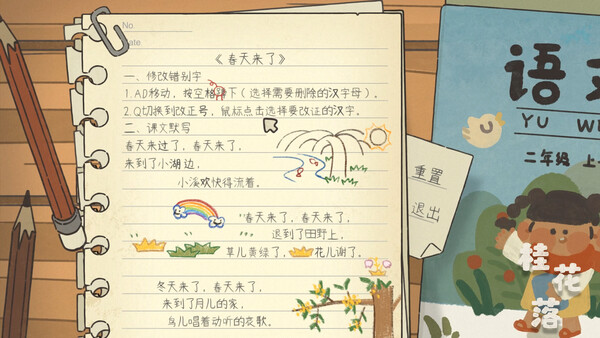 No
Date
《春天来了》
一、修改错别字
1.AD移动，按空格键下（选择需要删除的汉字母）。
2.Q切换到改正号，鼠标点击选择要改证的汉字。
二、课文默写
春天来过了，春天来了。
来到了小湖边，
小溪欢快得流着。
春天来了，春天来了，
迟到了田野上，
草儿黄绿了，花儿谢了。
冬天来了，春天来了，
来到了月儿的家，
鸟儿唱着动听的哀歌。
重置
退出
语文
YU WE
二年级 上
桂花落